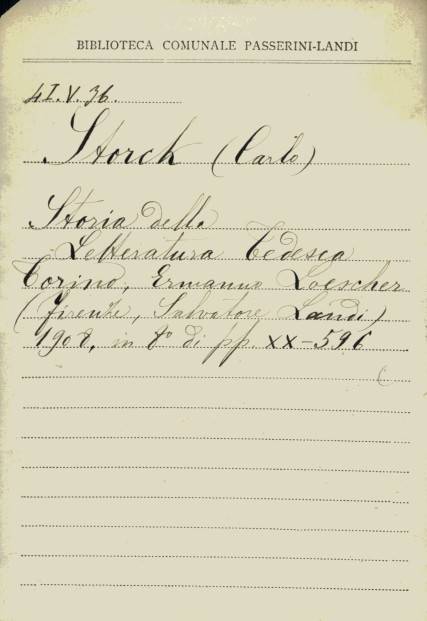 BIBLIOTECA COMUNALE PASSERINI-LANDI
4I.V.36.
Storck (Carlo)
Storia della
Letteratura Tedesca
Torino, Ermanno Loescher
(Firenze, Salvatore Landi)
1908, in 8° di pp. XX-596